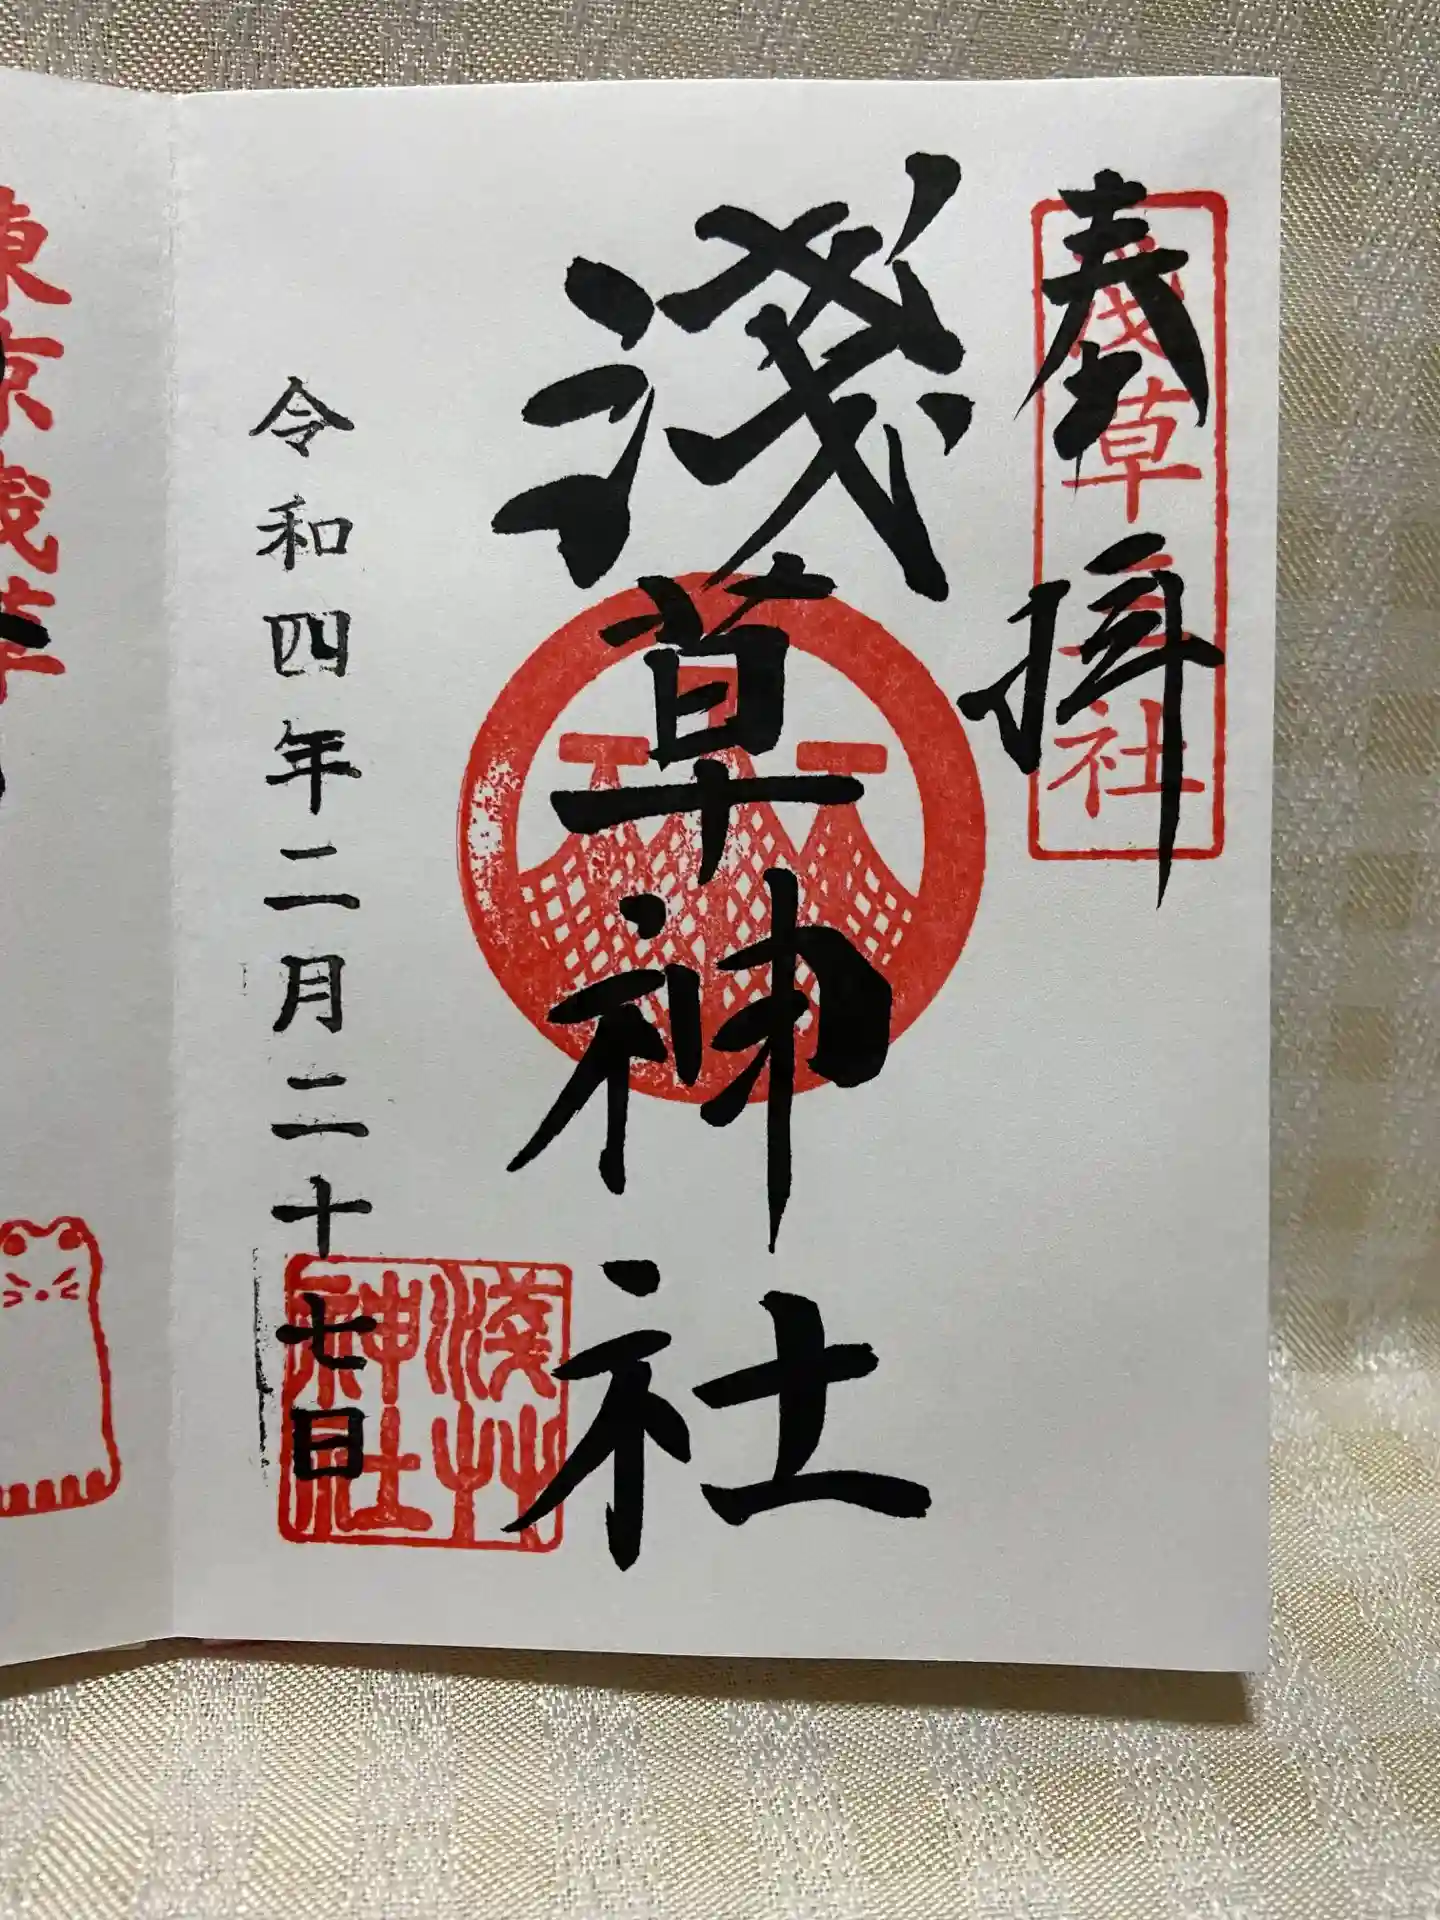 奉拝
淺草三社
淺草神社
淺草神社
令和四年二月二十七日
東京淺草